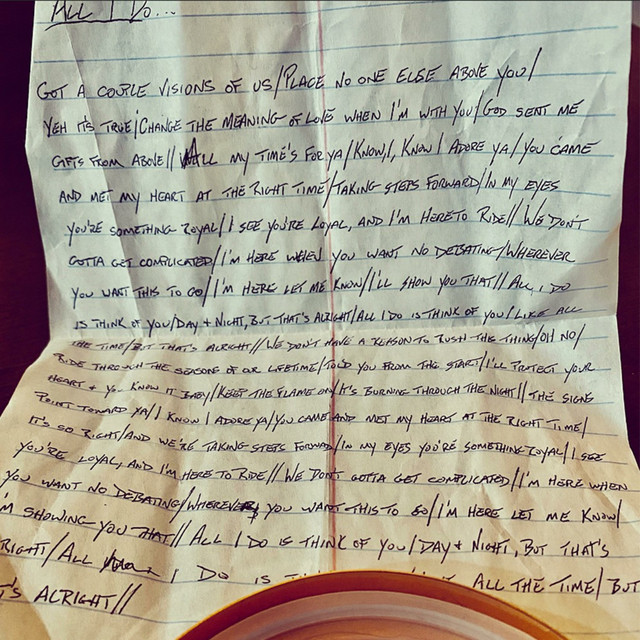 ALL I DO...
GOT A COUPLE VISIONS OF US/PLACE NO ONE ELSE ABOVE YOU/
YEH IT'S TRUE/CHANGE THE MEANING OF LOVE WHEN I'M WITH YOU/GOD SENT ME
GIFTS FROM ABOVE// ALL MY TIME'S FOR YA/KNOW, I, KNOW I ADORE YA/YOU CAME
AND MET MY HEART AT THE RIGHT TIME/TAKING STEPS FORWARD/IN MY EYES
YOU'RE SOMETHING ROYAL/I SEE YOU'RE LOYAL, AND I'M HERE TO RIDE// WE DON'T
GOTTA GET COMPLICATED/I'M HERE WHEN YOU WANT NO DEBATING/WHEREVER
YOU WANT THIS TO GO/I'M HERE LET ME KNOW/I'LL SHOW YOU THAT// ALL, I DO
IS THINK OF YOU/DAY + NIGHT, BUT THAT'S ALRIGHT/ALL I DO IS THINK OF YOU/LIKE ALL
THE TIME/BUT THAT'S ALRIGHT// WE DON'T HAVE A REASON TO RUSH THIS THING/OH NO/
RIDE THROUGH THE SEASONS OF OUR LIFETIME/TOLD YOU FROM THE START/I'LL PROTECT YOUR
HEART + YOU KNOW IT BABY/KEEP THE FLAME ON/IT'S BURNING THROUGH THE NIGHT// THE SIGNS
POINT TOWARD YA/I KNOW I ADORE YA/YOU CAME AND MET MY HEART AT THE RIGHT TIME/
IT'S SO RIGHT/AND WE'RE TAKING STEPS FORWARD/IN MY EYES YOU'RE SOMETHING ROYAL/I SEE
YOU'RE LOYAL, AND I'M HERE TO RIDE// WE DON'T GOTTA GET COMPLICATED/I'M HERE WHEN
YOU WANT NO DEBATING/WHEREVER YOU WANT THIS TO GO/I'M HERE LET ME KNOW/
I'M SHOWING YOU THAT// ALL I DO IS THINK OF YOU/DAY + NIGHT, BUT THAT'S
RIGHT/ALL I DO IS ALL THE TIME/BUT
T'S ALRIGHT//